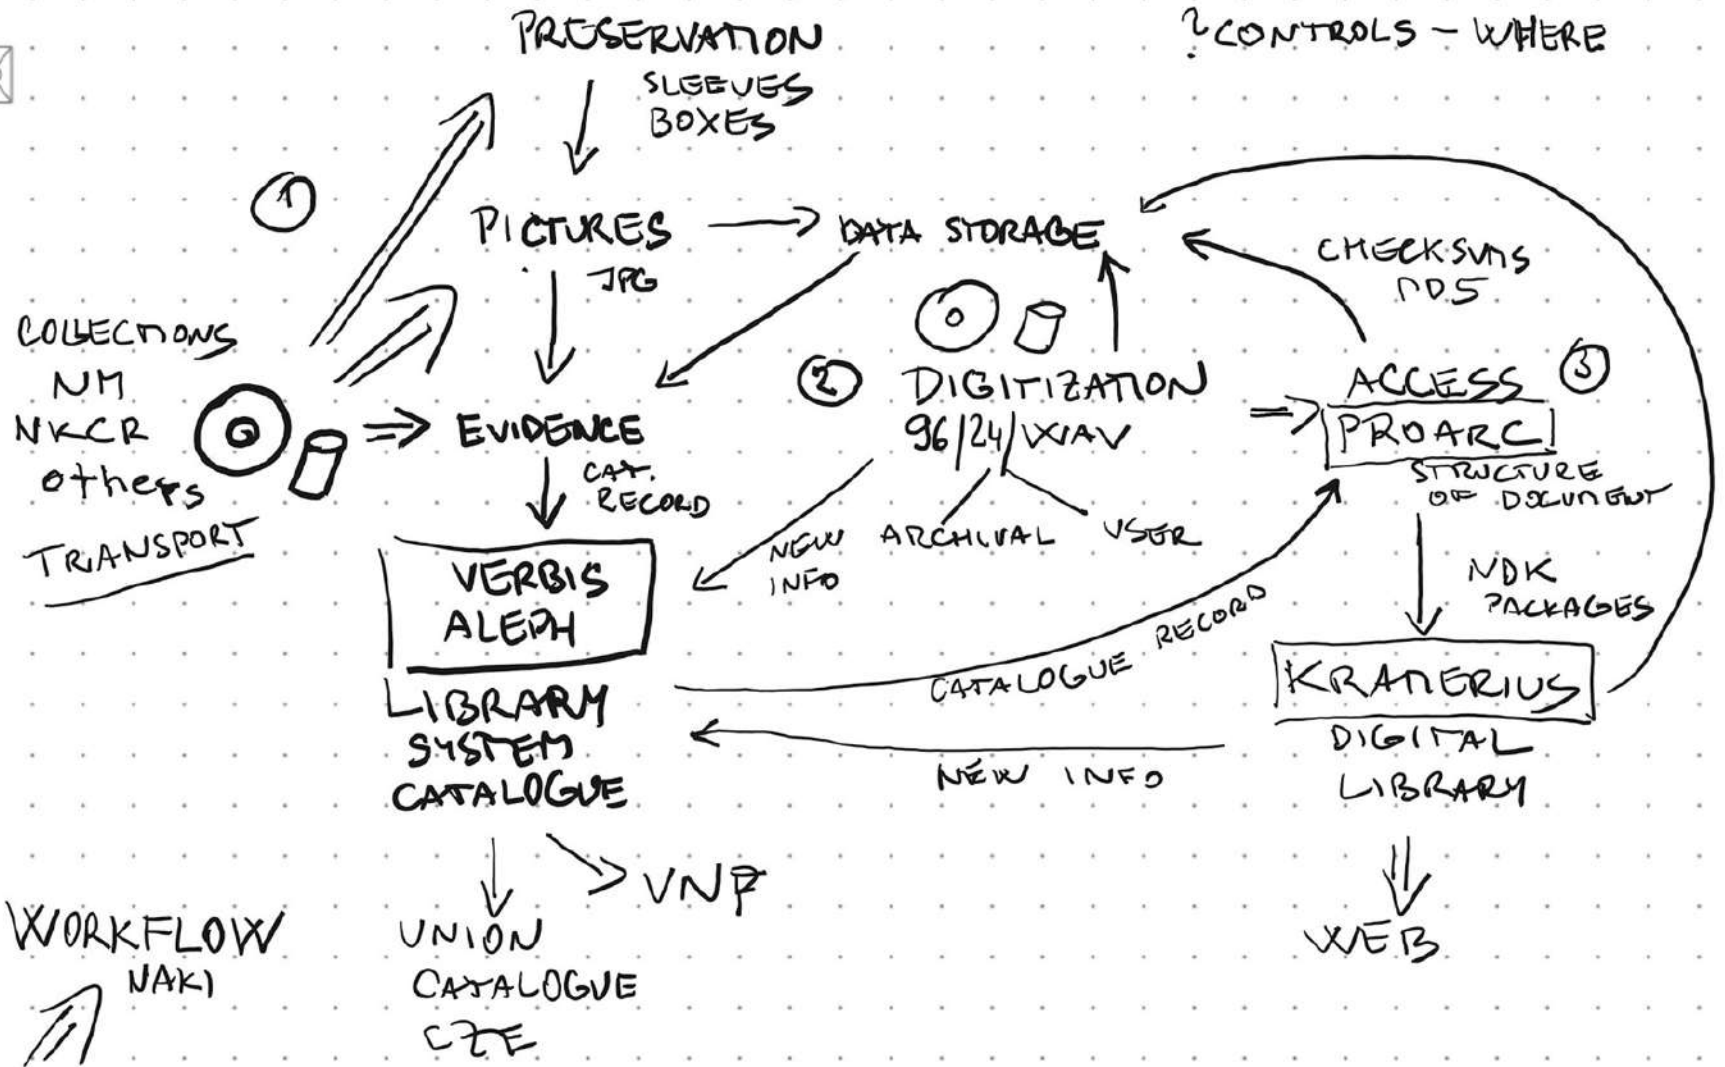 PRESERVATION
SLEEVES
BOXES
? CONTROLS - WHERE
1
PICTURES
JPG
DATA STORAGE
CHECKSUMS
MD5
COLLECTIONS
NM
NKCR
others
TRANSPORT
EVIDENCE
CAT.
RECORD
2
DIGITIZATION
96/24/WAV
ARCHIVAL
USER
NEW
INFO
ACCESS
3
PROARC
STRUCTURE
OF DOCUMENT
NDK
PACKAGES
VERBIS
ALEPH
LIBRARY
SYSTEM
CATALOGUE
CATALOGUE RECORD
NEW INFO
KRAMERIUS
DIGITAL
LIBRARY
WEB
VNF
UNION
CATALOGUE
CZE
WORKFLOW
NAKI